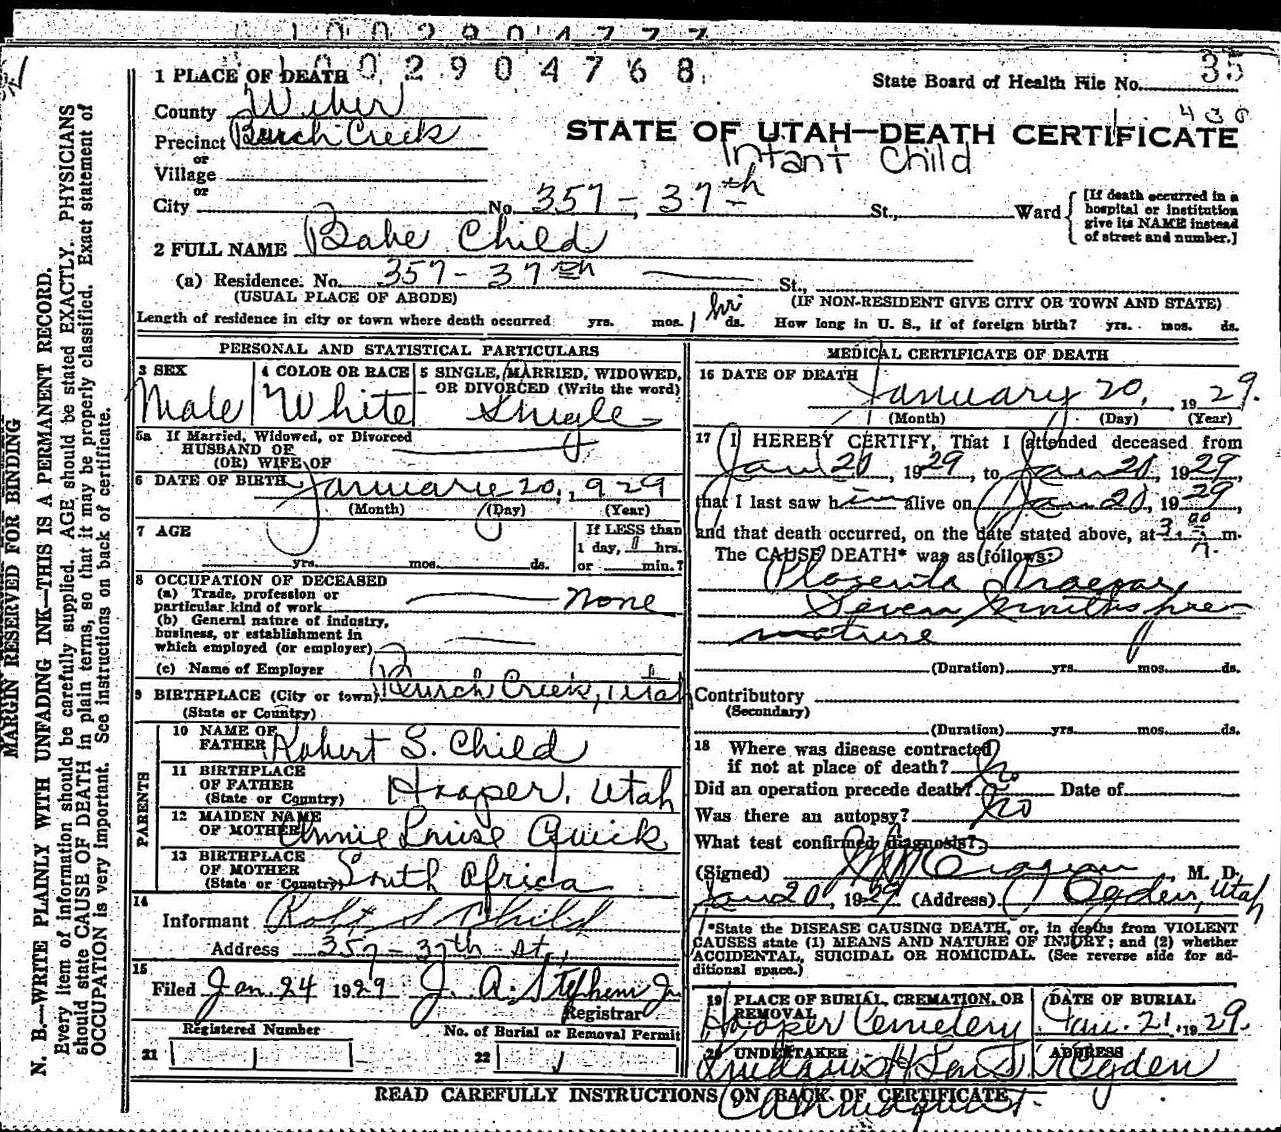 1002904777
1002904768
1 PLACE OF DEATH
State Board of Health File No. 35
County Weber
430
Precinct Burch Creek
STATE OF UTAH—DEATH CERTIFICATE
or
Infant Child
Village
or
City No. 357 - 37th St., Ward
[If death occurred in a hospital or institution give its NAME instead of street and number.]
2 FULL NAME Babe Child
(a) Residence. No. 357 - 37th St.,
(USUAL PLACE OF ABODE) (IF NON-RESIDENT GIVE CITY OR TOWN AND STATE)
Length of residence in city or town where death occurred yrs. mos. 1 hr ds. How long in U. S., if of foreign birth? yrs. mos. ds.
PERSONAL AND STATISTICAL PARTICULARS
3 SEX
Male
4 COLOR OR RACE
White
5 SINGLE, MARRIED, WIDOWED, OR DIVORCED (Write the word)
Single
5a If Married, Widowed, or Divorced
HUSBAND OF
(OR) WIFE OF
6 DATE OF BIRTH January 20, 1929
(Month) (Day) (Year)
7 AGE
yrs. mos. ds.
If LESS than
1 day, 1 hrs.
or min.?
8 OCCUPATION OF DECEASED
(a) Trade, profession or
particular kind of work none
(b) General nature of industry,
business, or establishment in
which employed (or employer)
(c) Name of Employer
9 BIRTHPLACE (City or town) Burch Creek, Utah
(State or Country)
PARENTS
10 NAME OF FATHER Robert S. Child
11 BIRTHPLACE OF FATHER Hooper, Utah
(State or Country)
12 MAIDEN NAME OF MOTHER Annie Louise Quick
13 BIRTHPLACE OF MOTHER South Africa
(State or Country)
14
Informant Robt S Child
Address 357 - 37th st.,
15
Filed Jan. 24 1929 J. A. Stephens Jr
Registrar
Registered Number No. of Burial or Removal Permit
21 22
MEDICAL CERTIFICATE OF DEATH
16 DATE OF DEATH
January 20, 1929.
(Month) (Day) (Year)
17 I HEREBY CERTIFY, That I attended deceased from
Jan 20, 1929, to Jan 20, 1929,
that I last saw him alive on Jan 20, 1929,
and that death occurred, on the date stated above, at 3:00 A. m.
The CAUSE DEATH* was as follows:
Placenta Praevia
Seven months pre-
mature
(Duration) yrs. mos. ds.
Contributory
(Secondary)
(Duration) yrs. mos. ds.
18 Where was disease contracted
if not at place of death? No
Did an operation precede death? Date of
Was there an autopsy? No
What test confirmed diagnosis?
(Signed) M. D.
Jan 20, 1929 (Address) Ogden, Utah
*State the DISEASE CAUSING DEATH, or, in deaths from VIOLENT
CAUSES state (1) MEANS AND NATURE OF INJURY; and (2) whether
ACCIDENTAL, SUICIDAL OR HOMICIDAL. (See reverse side for ad-
ditional space.)
19 PLACE OF BURIAL, CREMATION, OR REMOVAL
Hooper Cemetery
DATE OF BURIAL
Jan. 21, 1929.
20 UNDERTAKER
Lindquist & Sons
ADDRESS
Ogden
READ CAREFULLY INSTRUCTIONS ON BACK OF CERTIFICATE
MARGIN RESERVED FOR BINDING
N. B.—WRITE PLAINLY WITH UNFADING INK—THIS IS A PERMANENT RECORD.
Every item of information should be carefully supplied. AGE should be stated EXACTLY. PHYSICIANS
should state CAUSE OF DEATH in plain terms, so that it may be properly classified. Exact statement of
OCCUPATION is very important. See instructions on back of certificate.